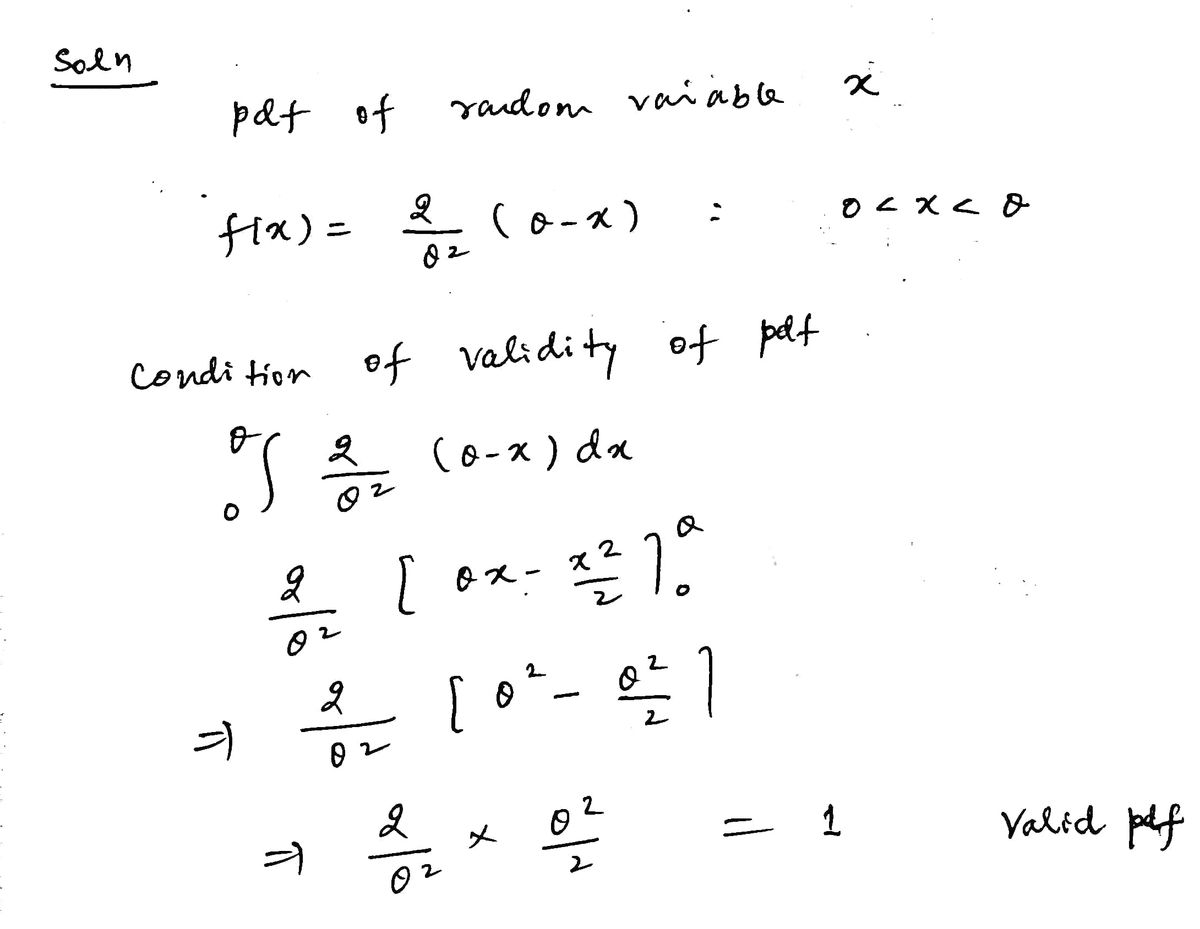 Soln
pdf of random variable x
f(x) = 2/θ² (θ-x) : 0 < x < θ
Condition of validity of pdf
₀^θ∫ 2/θ² (θ-x) dx
2/θ² [ θx - x²/2 ]₀^θ
⇒ 2/θ² [ θ² - θ²/2 ]
⇒ 2/θ² × θ²/2 = 1 Valid pdf